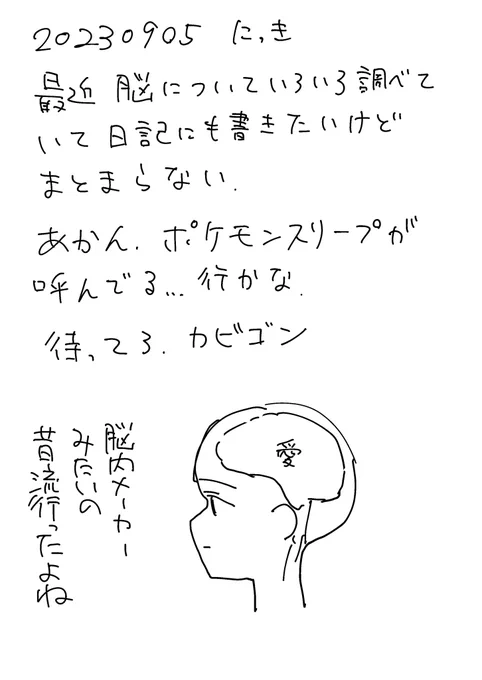 20230905 にっき
最近 脳についていろいろ調べて
いて 日記にも書きたいけど
まとまらない.
あかん. ポケモンスリープが
呼んでる... 行かな.
待ってろ. カビゴン
愛
脳内メーカー
みたいの
昔流行ったよね